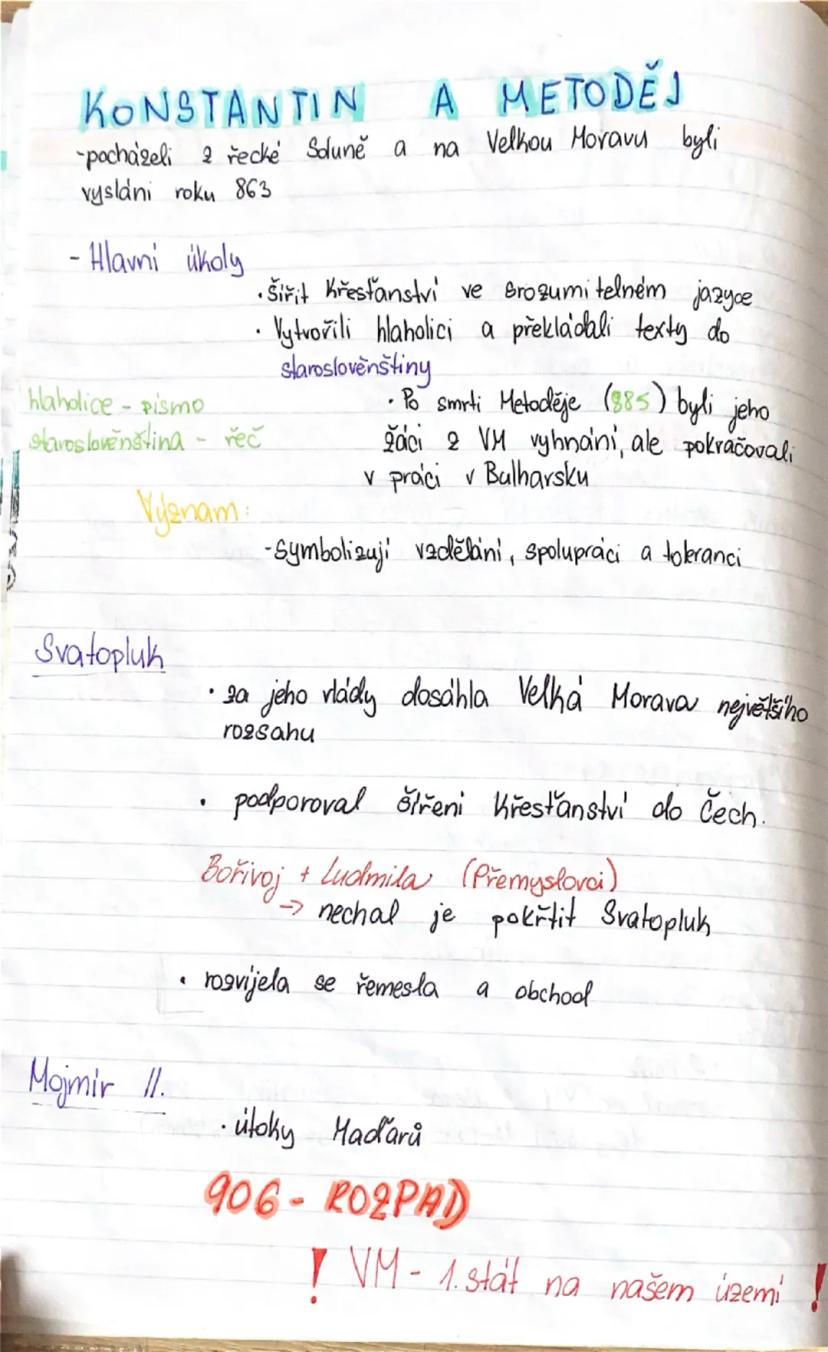 KONSTANTIN A METODĚJ
-pocházeli z řecké Soluně a na Velkou Moravu byli
vysláni roku 863
- Hlavní úkoly
• šířit křesťanství ve srozumitelném jazyce
• Vytvořili hlaholici a překládali texty do
staroslověnštiny
hlaholice - písmo
staroslověnština - řeč
• Po smrti Metoděje (885) byli jeho
žáci z VM vyhnáni, ale pokračovali
v práci v Bulharsku
Význam:
-symbolizují vzdělání, spolupráci a toleranci
Svatopluk
• za jeho vlády dosáhla Velká Morava největšího
rozsahu
• podporoval šíření křesťanství do Čech.
Bořivoj + Ludmila (Přemyslovci)
→ nechal je pokřtit Svatopluk
• rozvijela se řemesla a obchod
Mojmír II.
• útoky Maďarů
906 - ROZPAD
! VM - 1. stát na našem území !